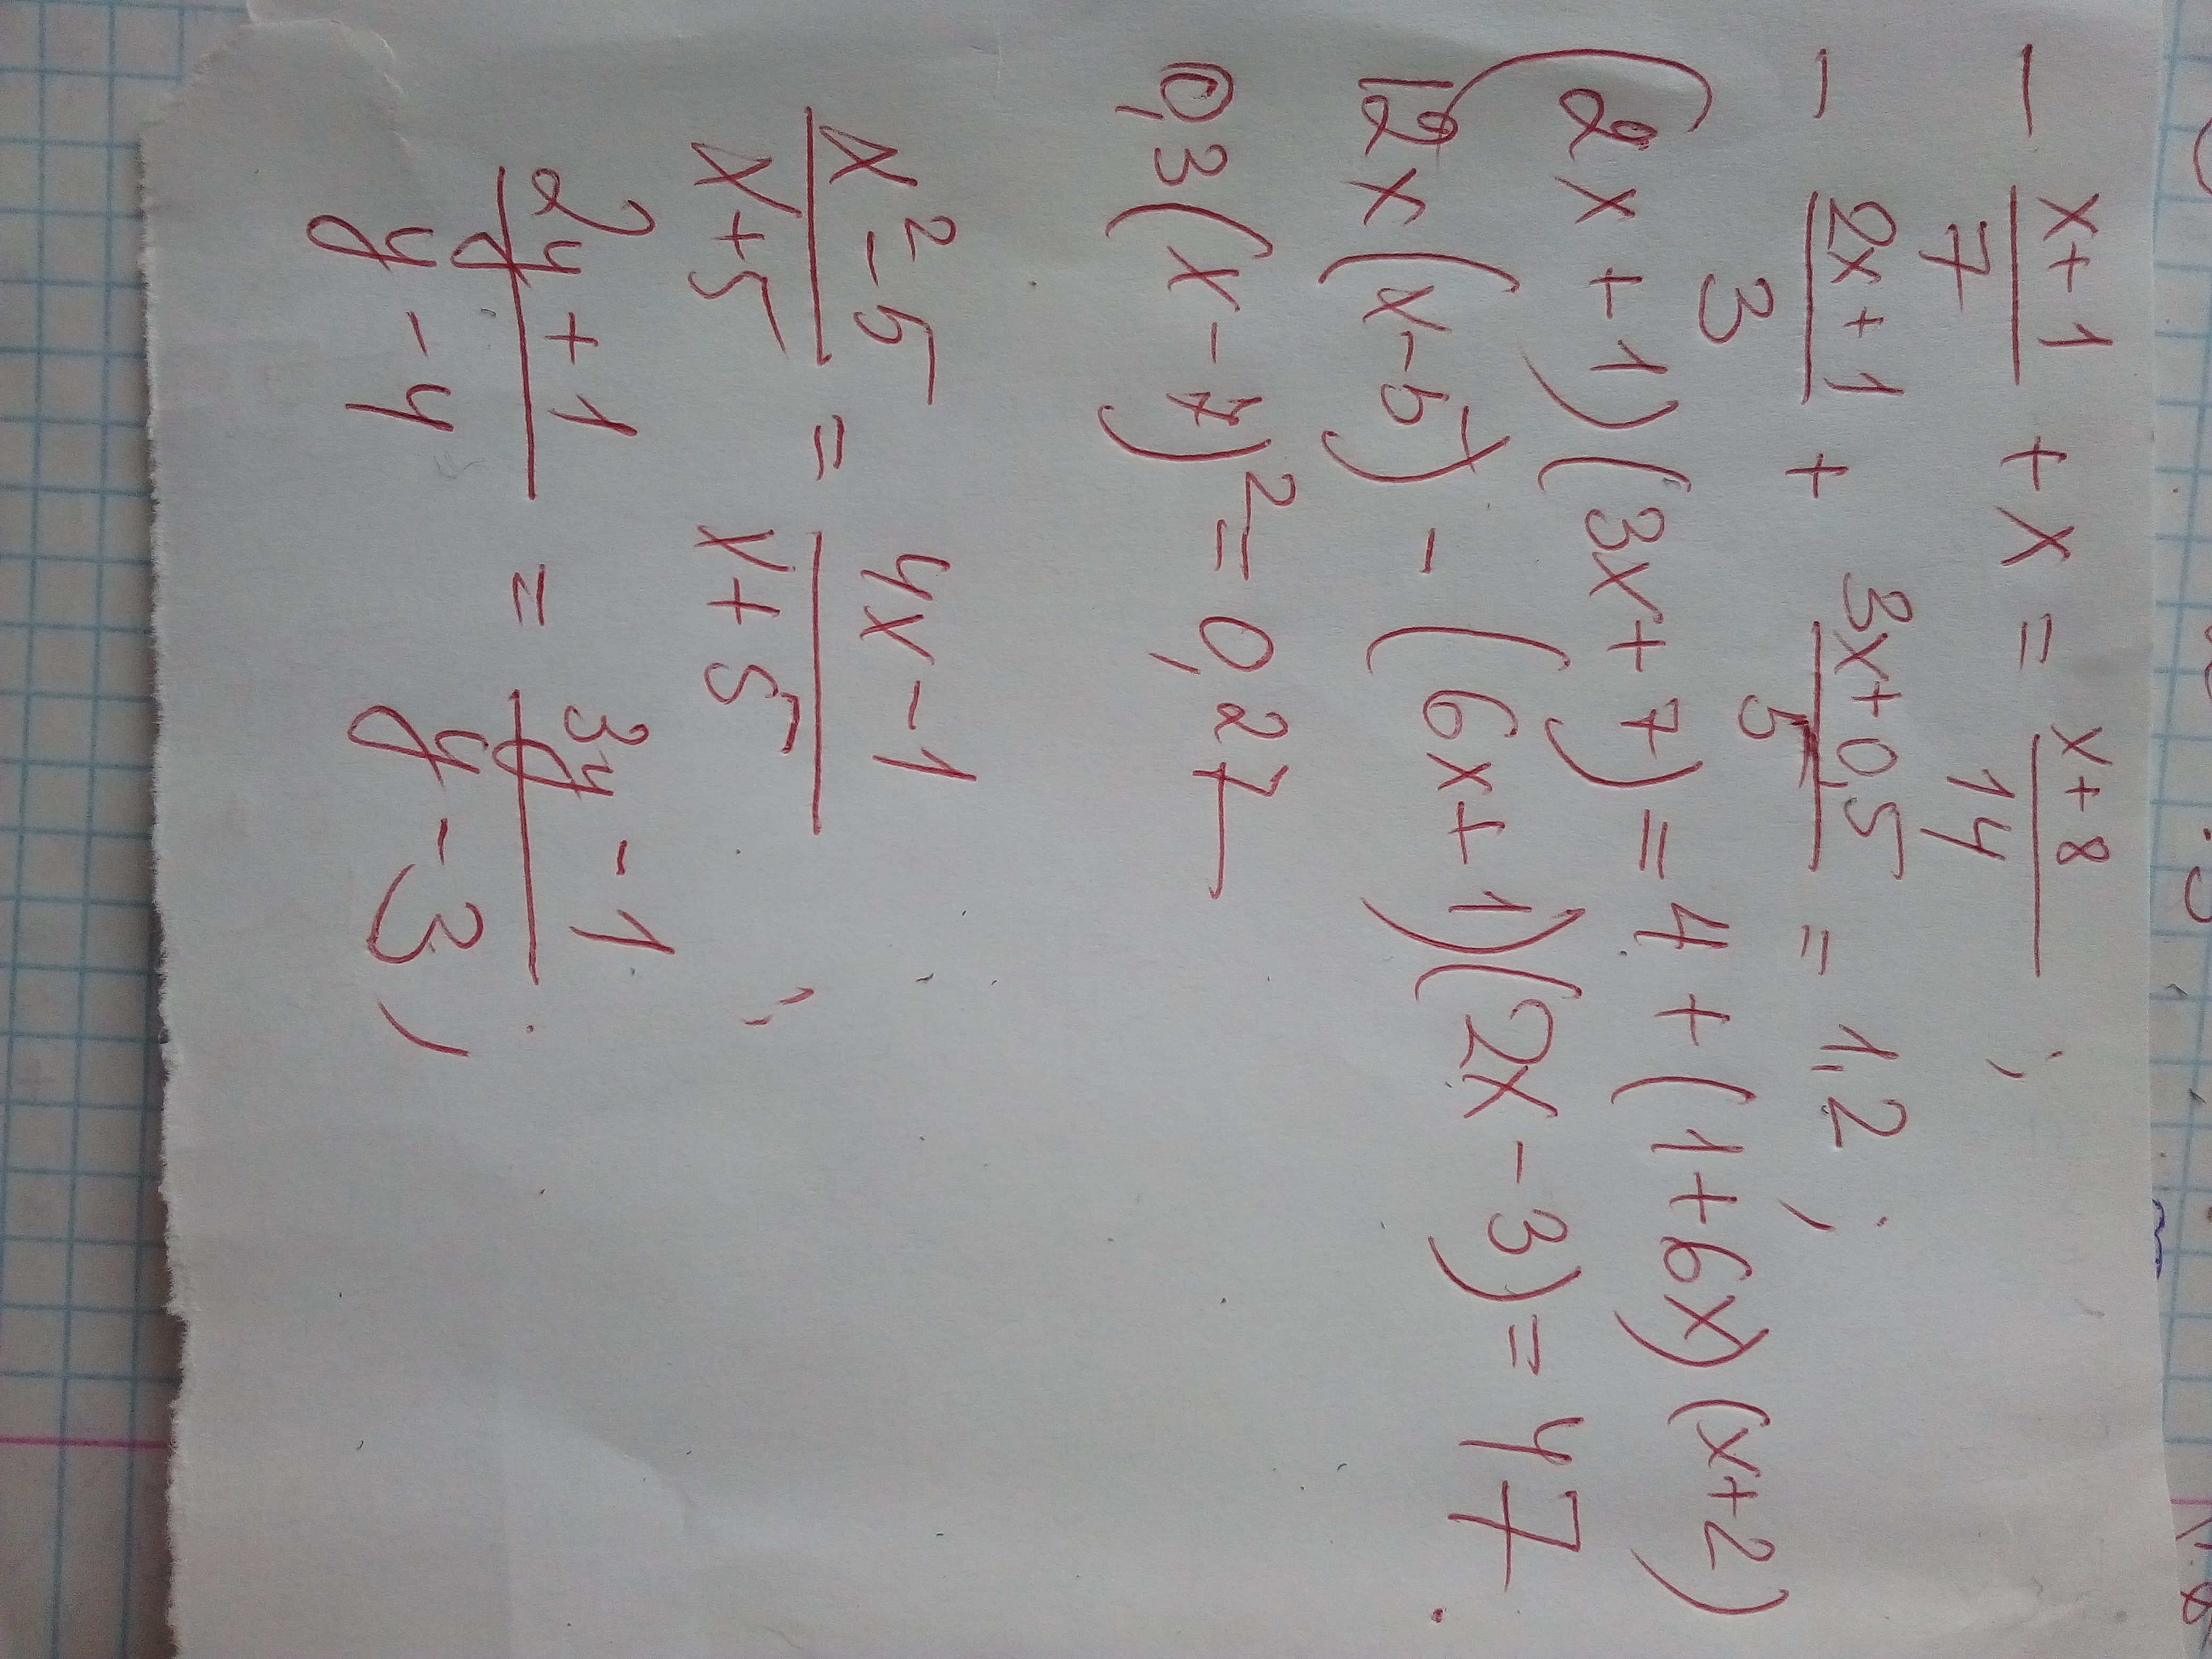 - (x+1)/7 + x = (x+8)/14 ;
- (2x+1)/3 + (3x+0,5)/5 = 1,2 ;
(2x+1)(3x+7) = 4 + (1+6x)(x+2)
12x(x-5) - (6x+1)(2x-3) = 47.
0,3(x-7)² = 0,27
(x²-5)/(x+5) = (4x-1)/(x+5) ;
(2y+1)/(y-4) = (3y-1)/(y-3)